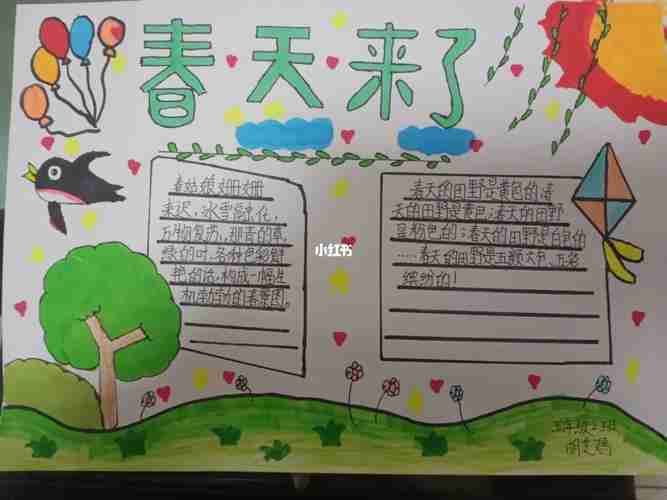 春天来了
春姑娘姗姗
来迟，冰雪融化，
万物复苏，那青的草，
绿的叶，各种色彩鲜
艳的花，构成一幅生
机勃勃的春景图。
小红书
春天的田野是黄色的；春
天的田野是黄色；春天的田野
是粉色的；春天的田野是白色的
……春天的田野是五颜六色、五彩
缤纷的！